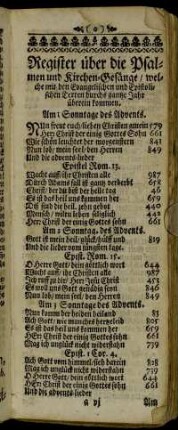 Register über die Psal-
men und Kirchen-Gesänge / wel-
che mit den Evangelischen und Epistoli-
schen Texten durchs gantze Jahr
überein kommen.
Am 1 Sonntage des Advents.
Nun freut euch lieben Christen gmein 779
Herr Christ der einig Gottes Sohn 661
Wie schön leuchtet der morgenstern 841
Nun lob / mein seel / den Herren 849
Und die advents-lieder
Epistel Rom. 13.
Wacht auff ihr Christen alle 987
Durch Adams fall ist gantz verderbt 658
Christ / der du bist der helle tag 46
Es ist das heil uns kommen her 659
Mensch / wilt u leben seliglich 442
Herr Christ der einig Gottes sohn 661
Am 2 Sonntag. des Advents.
Gott ist mein heil / glück / hülff und 819
Und die lieder vom jüngsten tage.
Epist. Rom. 15.
O Herre Gott / dein göttlich wort 644
Wacht auff ihr Christen alle 987
Ich ruff zu dir Herr Jesu Christ 453
Es woll uns Gott genädig seyn 846
Nun lob / mein seel / den Herren 849
Am 3 Sonntage des Advents.
Nun komm der heiden heiland 83
Ach Gott / wie manches hertzeleid 805
Es ist das heil uns kommen her 659
HErr Christ der einig Gottes sohn 661
Mag ich unglück nicht widerstahn 739
Epist. 1 Cor. 4.
Ach Gott vom himmel sieh darein 828
Mag ich unglück nicht widerstahn 739
O Herre Gott / dein göttlich wort 644
HErr Christ der einig Gottes sohn 661
Und die advents-lieder
Am